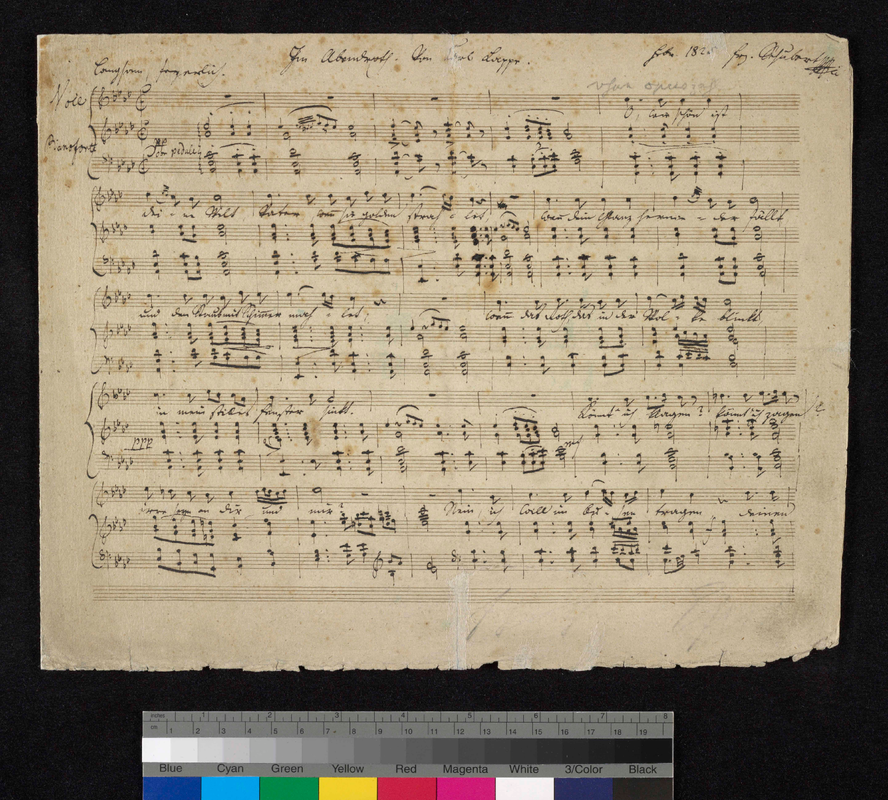 Im Abendroth. Von Carl Lappe. Febr. 1825 Frz. Schubert mpia
Langsam, feyerlich.
ohne opuszahl
Voce
O, wie schön ist
Pianoforte
pp
con pedale
deine Welt Vater wenn sie golden strahlet, wenn dein Glanz hernieder fällt
und den Staub mit Schimmer mahlet,
wenn das Roth, das in der Wolke blinkt
in mein stilles Fenster sinkt. Könnt' ich klagen? könnt' ich zagen?
ppp
irre seyn an dir und mir? Nein, ich will im Busen tragen deinen
inches 1 2 3 4 5 6 7 8
cm. 1 2 3 4 5 6 7 8 9 10 11 12 13 14 15 16 17 18 19
Blue Cyan Green Yellow Red Magenta White 3/Color Black